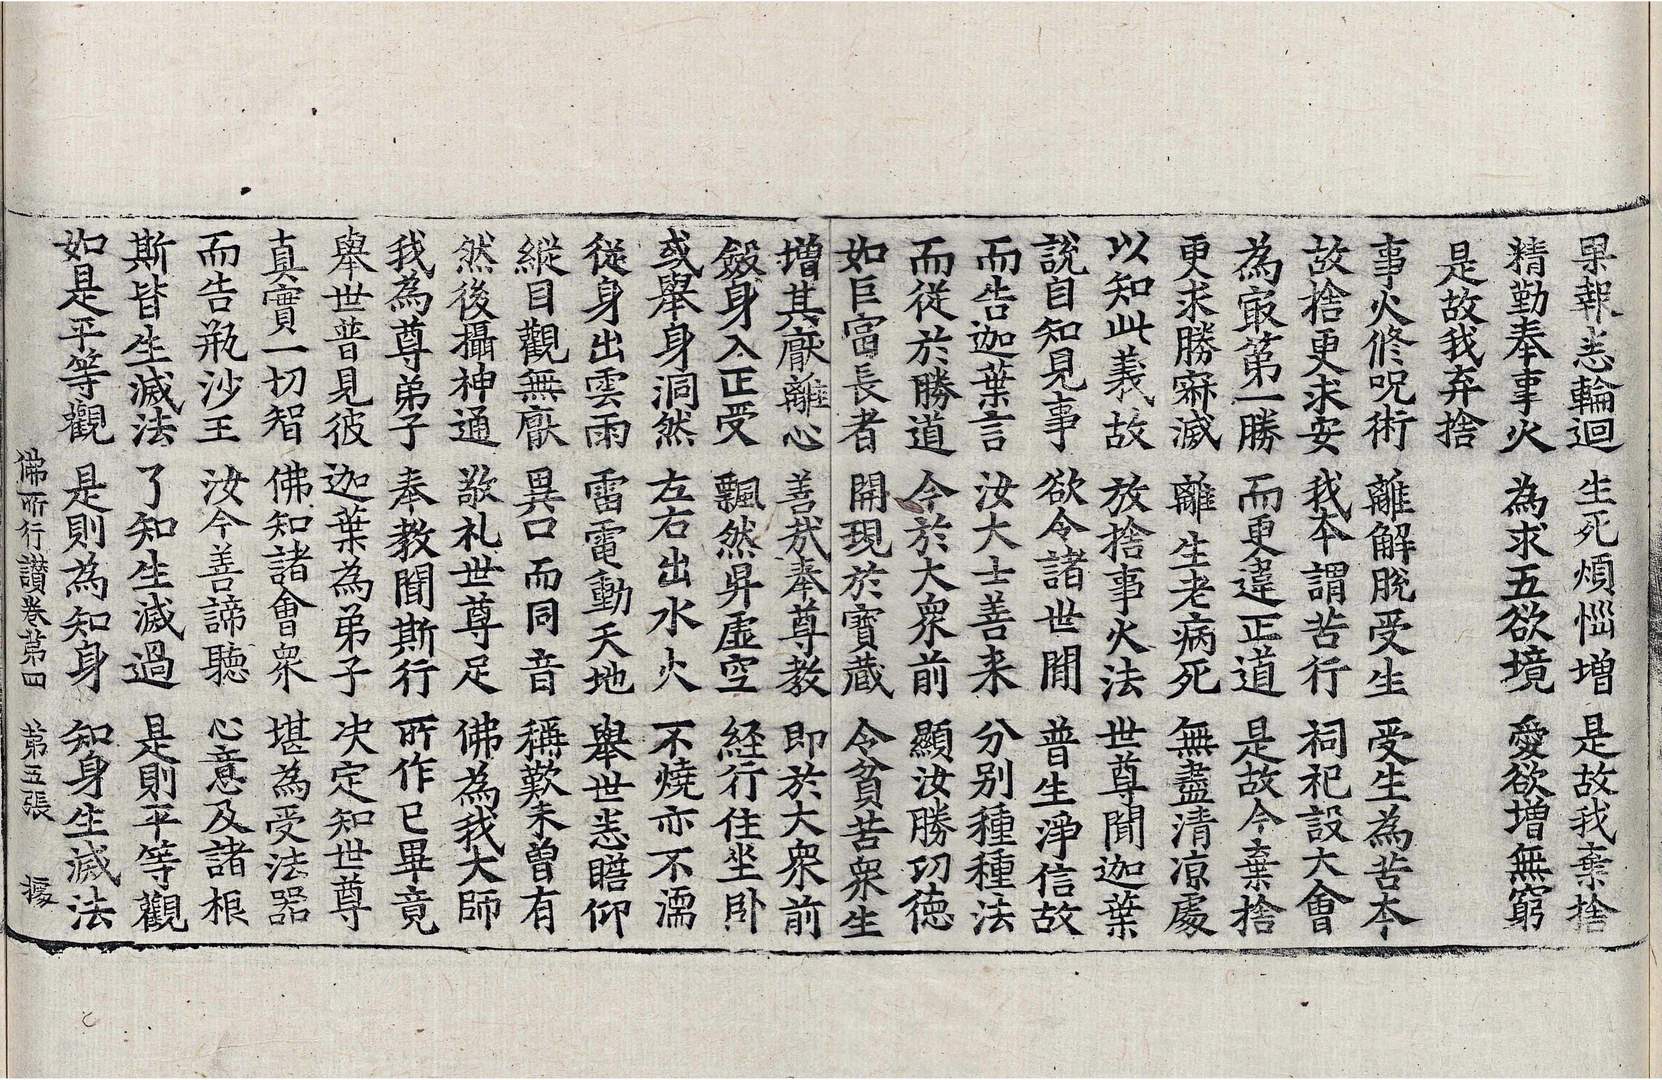 果報悉輪迴　生死煩惱増　是故我棄捨
精勤奉事火　為求五欲境　愛欲増無窮
是故我弃捨
事火修呪術　離解脫受生　受生為苦本
故捨更求安　我本謂苦行　祠祀設大會
為㝡第一勝　而更違正道　是故今棄捨
更求勝寂滅　離生老病死　無盡清凉處
以知此義故　放捨事火法　世尊聞迦葉
說自知見事　欲令諸世間　普生淨信故
而告迦葉言　汝大士善来　分別種種法
而従於勝道　今於大衆前　顯汝勝㓛徳
如巨富長者　開現於寶蔵　令貧苦衆生
増其厭離心　善㢤奉尊教　即於大衆前
斂身入正受　飄然昇虛空　経行住坐卧
或舉身洞然　左右出水火　不燒亦不濡
従身出雲雨　雷電動天地　舉世悉瞻仰
縱目觀無厭　異口而同音　稱歎未曽有
然後攝神通　敬礼世尊足　佛為我大師
我為尊弟子　奉教聞斯行　所作已畢竟
舉世普見彼　迦葉為弟子　决定知世尊
真實一切智　佛知諸會衆　堪為受法器
而告瓶沙王　汝今善諦聽　心意及諸根
斯皆生滅法　了知生滅過　是則平等觀
如是平等觀　是則為知身　知身生滅法
佛所行讃巻第四　第五張　據